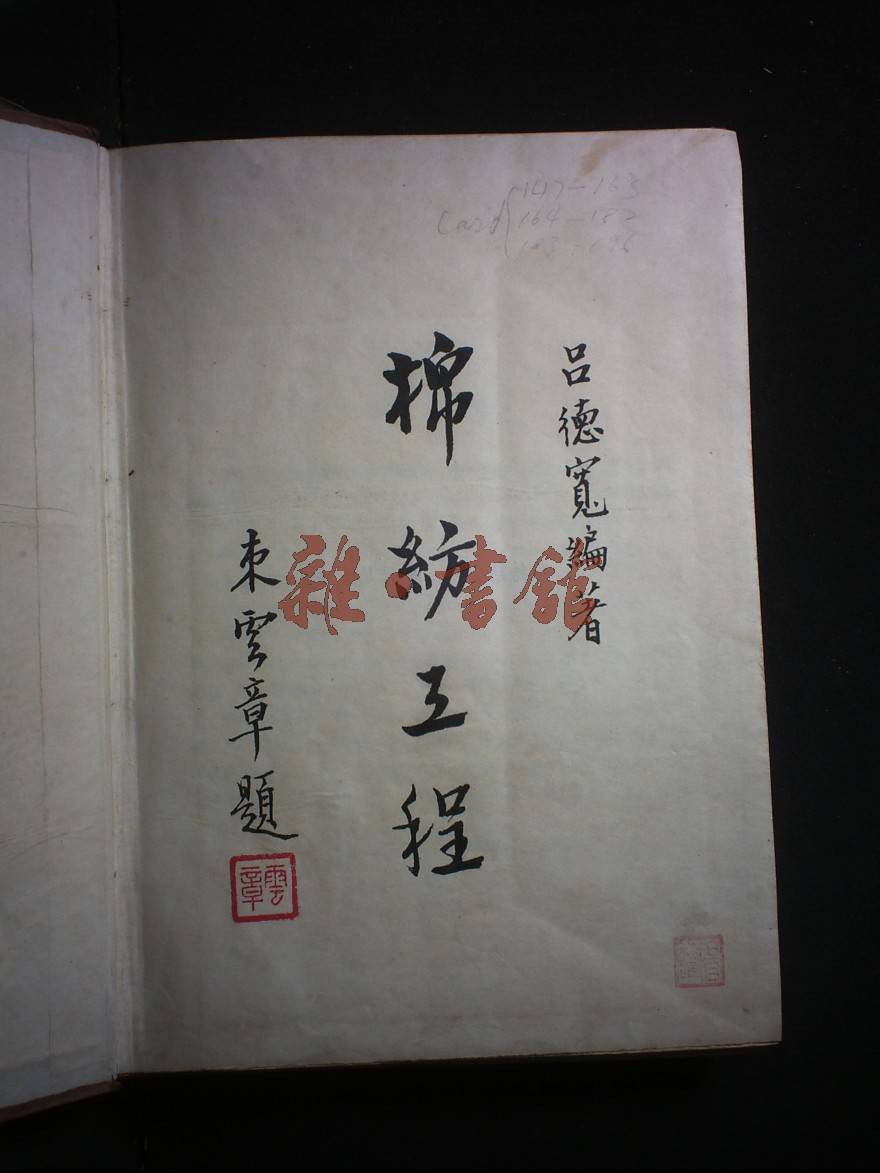 Card { 147-163
164-182
呂德寬編著
棉紡工程
束雲章題
雲章
雜·書館